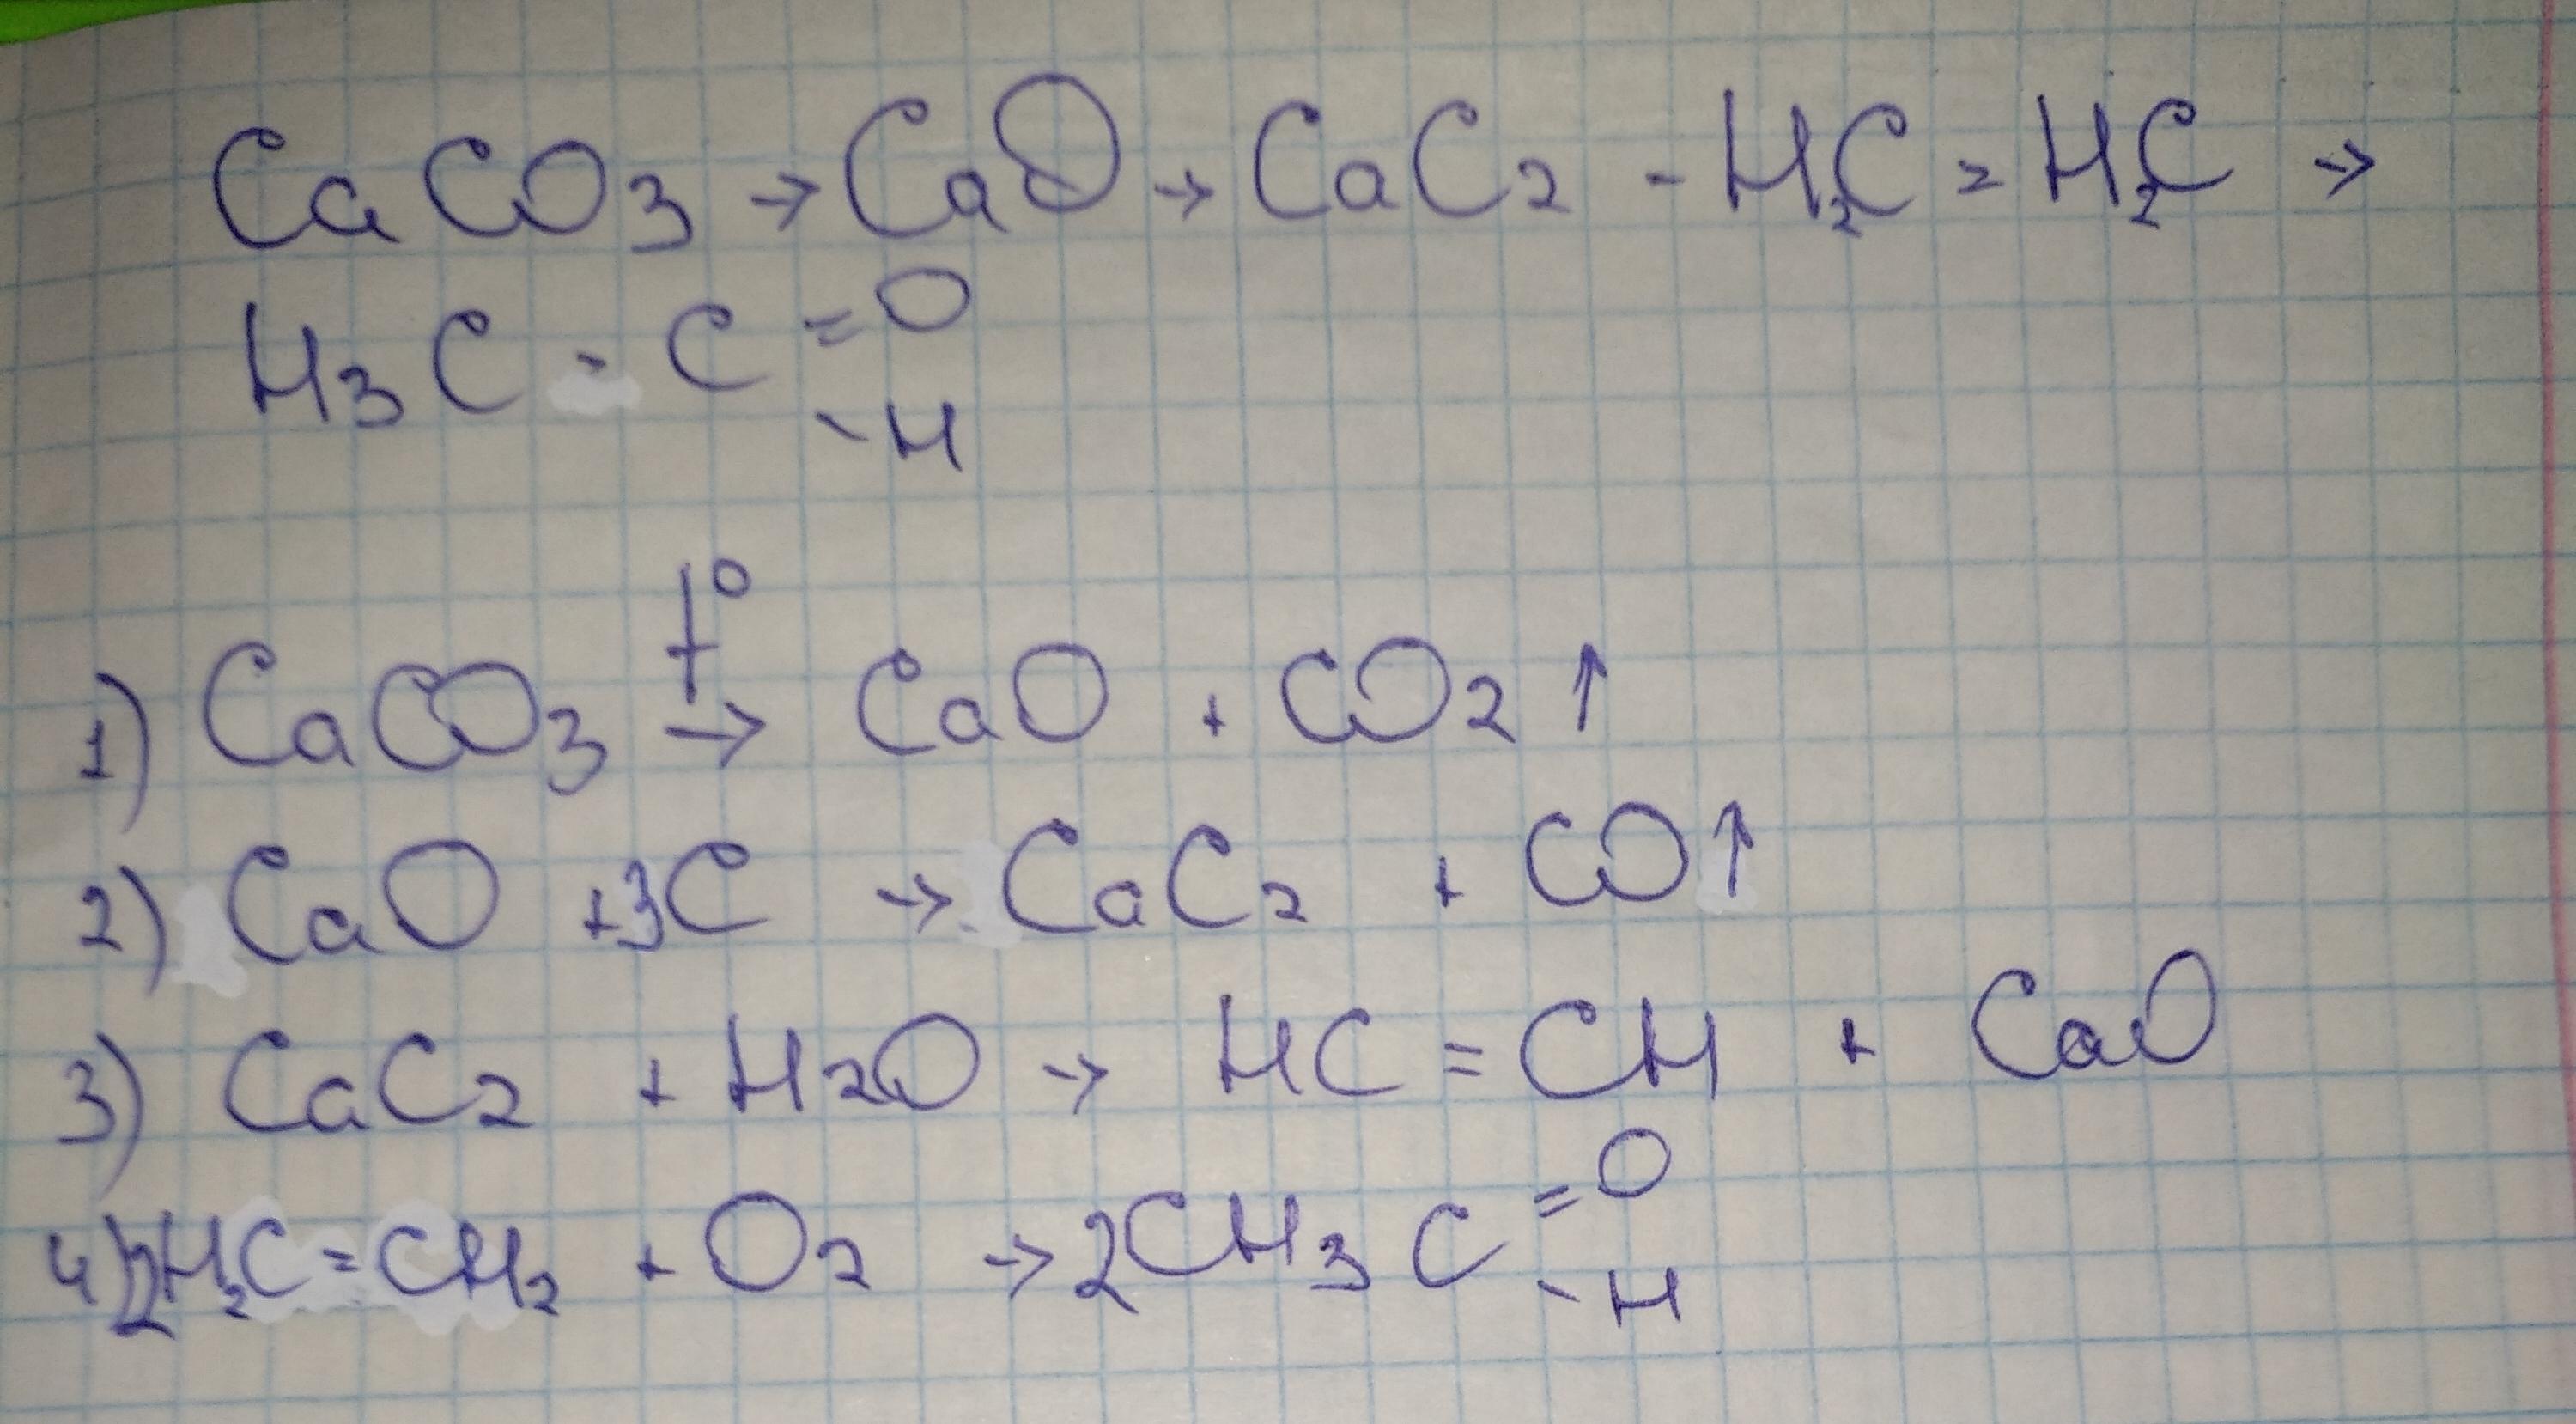 CaCO3 → CaO → CaC2 - H2C = H2C →
H3C - C =O -H
1) CaCO3 t° → CaO + CO2 ↑
2) CaO +3C → CaC2 + CO↑
3) CaC2 + H2O → HC = CH + CaO
4) 2H2C = CH2 + O2 → 2CH3 C =O -H